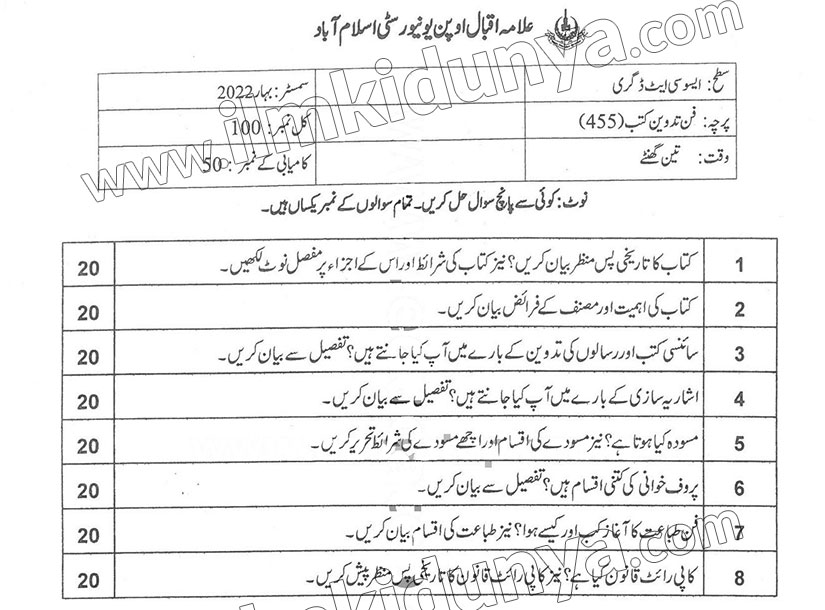 علامہ اقبال اوپن یونیورسٹی اسلام آباد
سطح: ایسوسی ایٹ ڈگری سمسٹر: بہار 2022
پرچہ: فن تدوین کتب (455) کل نمبر: 100
وقت: تین گھنٹے کامیابی کے نمبر: 50
نوٹ: کوئی سے پانچ سوال حل کریں۔ تمام سوالوں کے نمبر یکساں ہیں۔
1 کتاب کا تاریخی پس منظر بیان کریں؟ نیز کتاب کی شرائط اور اس کے اجزاء پر مفصل نوٹ لکھیں۔ 20
2 کتاب کی اہمیت اور مصنف کے فرائض بیان کریں۔ 20
3 سائنسی کتب اور رسالوں کی تدوین کے بارے میں آپ کیا جانتے ہیں؟ تفصیل سے بیان کریں۔ 20
4 اشاریہ سازی کے بارے میں آپ کیا جانتے ہیں؟ تفصیل سے بیان کریں۔ 20
5 مسودہ کیا ہوتا ہے؟ نیز مسودے کی اقسام اور اچھے مسودے کی شرائط تحریر کریں۔ 20
6 پروف خوانی کی کتنی اقسام ہیں؟ تفصیل سے بیان کریں۔ 20
7 فن طباعت کا آغاز کب اور کیسے ہوا؟ نیز طباعت کی اقسام بیان کریں۔ 20
8 کاپی رائٹ قانون کیا ہے؟ نیز کاپی رائٹ قانون کا تاریخی پس منظر پیش کریں۔ 20
www.ilmkidunya.com
ilmkidunya.com